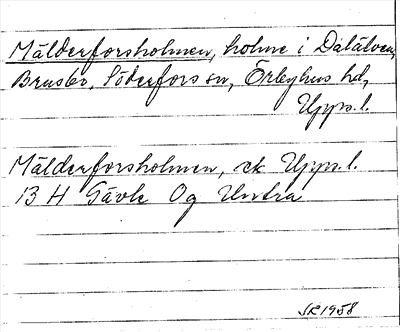 Mälderforsholmen, holme i Dalälven,
Brusbo, Söderfors sn, Örbyhus hd,
Upps. l.
Mälderforsholmen, ek Upps. l.
13 H Gävle Og Untra
SR 1958